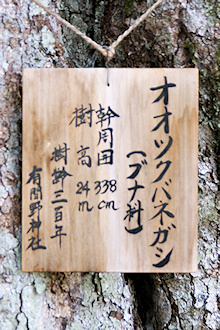 オオツクバネガシ
(ブナ科)
幹周囲 338cm
樹高 24m
樹齢三百年
有間野神社